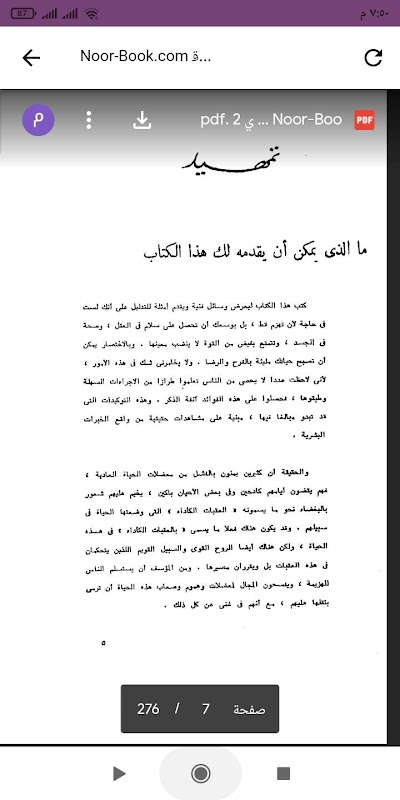 ٧:٥٠ م
87
Noor-Book.com ة...
م
pdf. 2 ي ... Noor-Boo
PDF
تمهيد
ما الذى يمكن أن يقدمه لك هذا الكتاب
كتب هذا الكتاب ليعرض وسائل فنية ويقدم امثلة للتدليل على أنك لست
فى حاجة لأن تهزم قط ، بل بوسعك أن تحصل على سلام فى العقل ، وصحة
فى الجسد ، وتتمتع بفيض من القوة لا ينضب معينها . وبالاختصار يمكن
أن تصبح حياتك مليئة بالفرح والرضا . ولا يخامرنى شك فى هذه الأمور ،
لأنى لاحظت عددا لا يحصى من الناس تعلموا طرازا من الاجراءات البسيطة
وطبقوها ، فحصلوا على هذه الفوائد آنفة الذكر . وهذه التوكيدات التى
قد تبدو مبالغا فيها ، مبنية على مشاهدات حقيقية من واقع الخبرات
البشرية .
والحقيقة أن كثيرين يمنون بالفشل من معضلات الحياة العادية ،
فهم يقضون أيامهم كادحين وفى بعض الأحيان باكين ، يخيم عليهم شعور
بالبغضاء نحو ما يسمونه « العقبات الكأداء » التى وضعتها الحياة فى
سبيلهم . وقد يكون هناك فعلا ما يسمى « بالعقبات الكأداء » فى هذه
الحياة ، ولكن هناك أيضا الروح القوى والسبيل القويم اللذين يتحكمان
فى هذه العقبات بل ويقرران مصيرها . ومن المؤسف أن يستسلم الناس
للهزيمة ، ويفسحون المجال لمعضلات وهموم وصعاب هذه الحياة أن ترسى
بثقلها عليهم ، مع أنهم فى غنى عن كل ذلك .
٥
صفحة 7 / 276